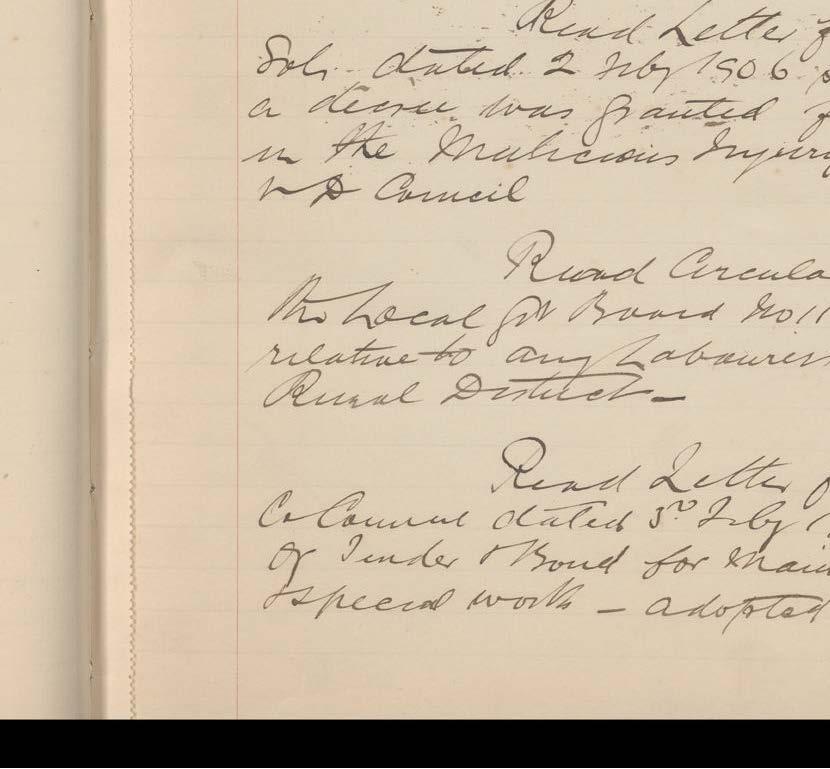 Read Letter f
Sol. dated 2 Feby 1906
a decree was granted f
in the Malicious Injury
R D Council
Read Circula
the Local Gvt Board No 11
relative to any Labourers
Rural District —
Read Letter
Co Council dated 3rd Feby
of Tender & Bond for Main
& special work — adopted